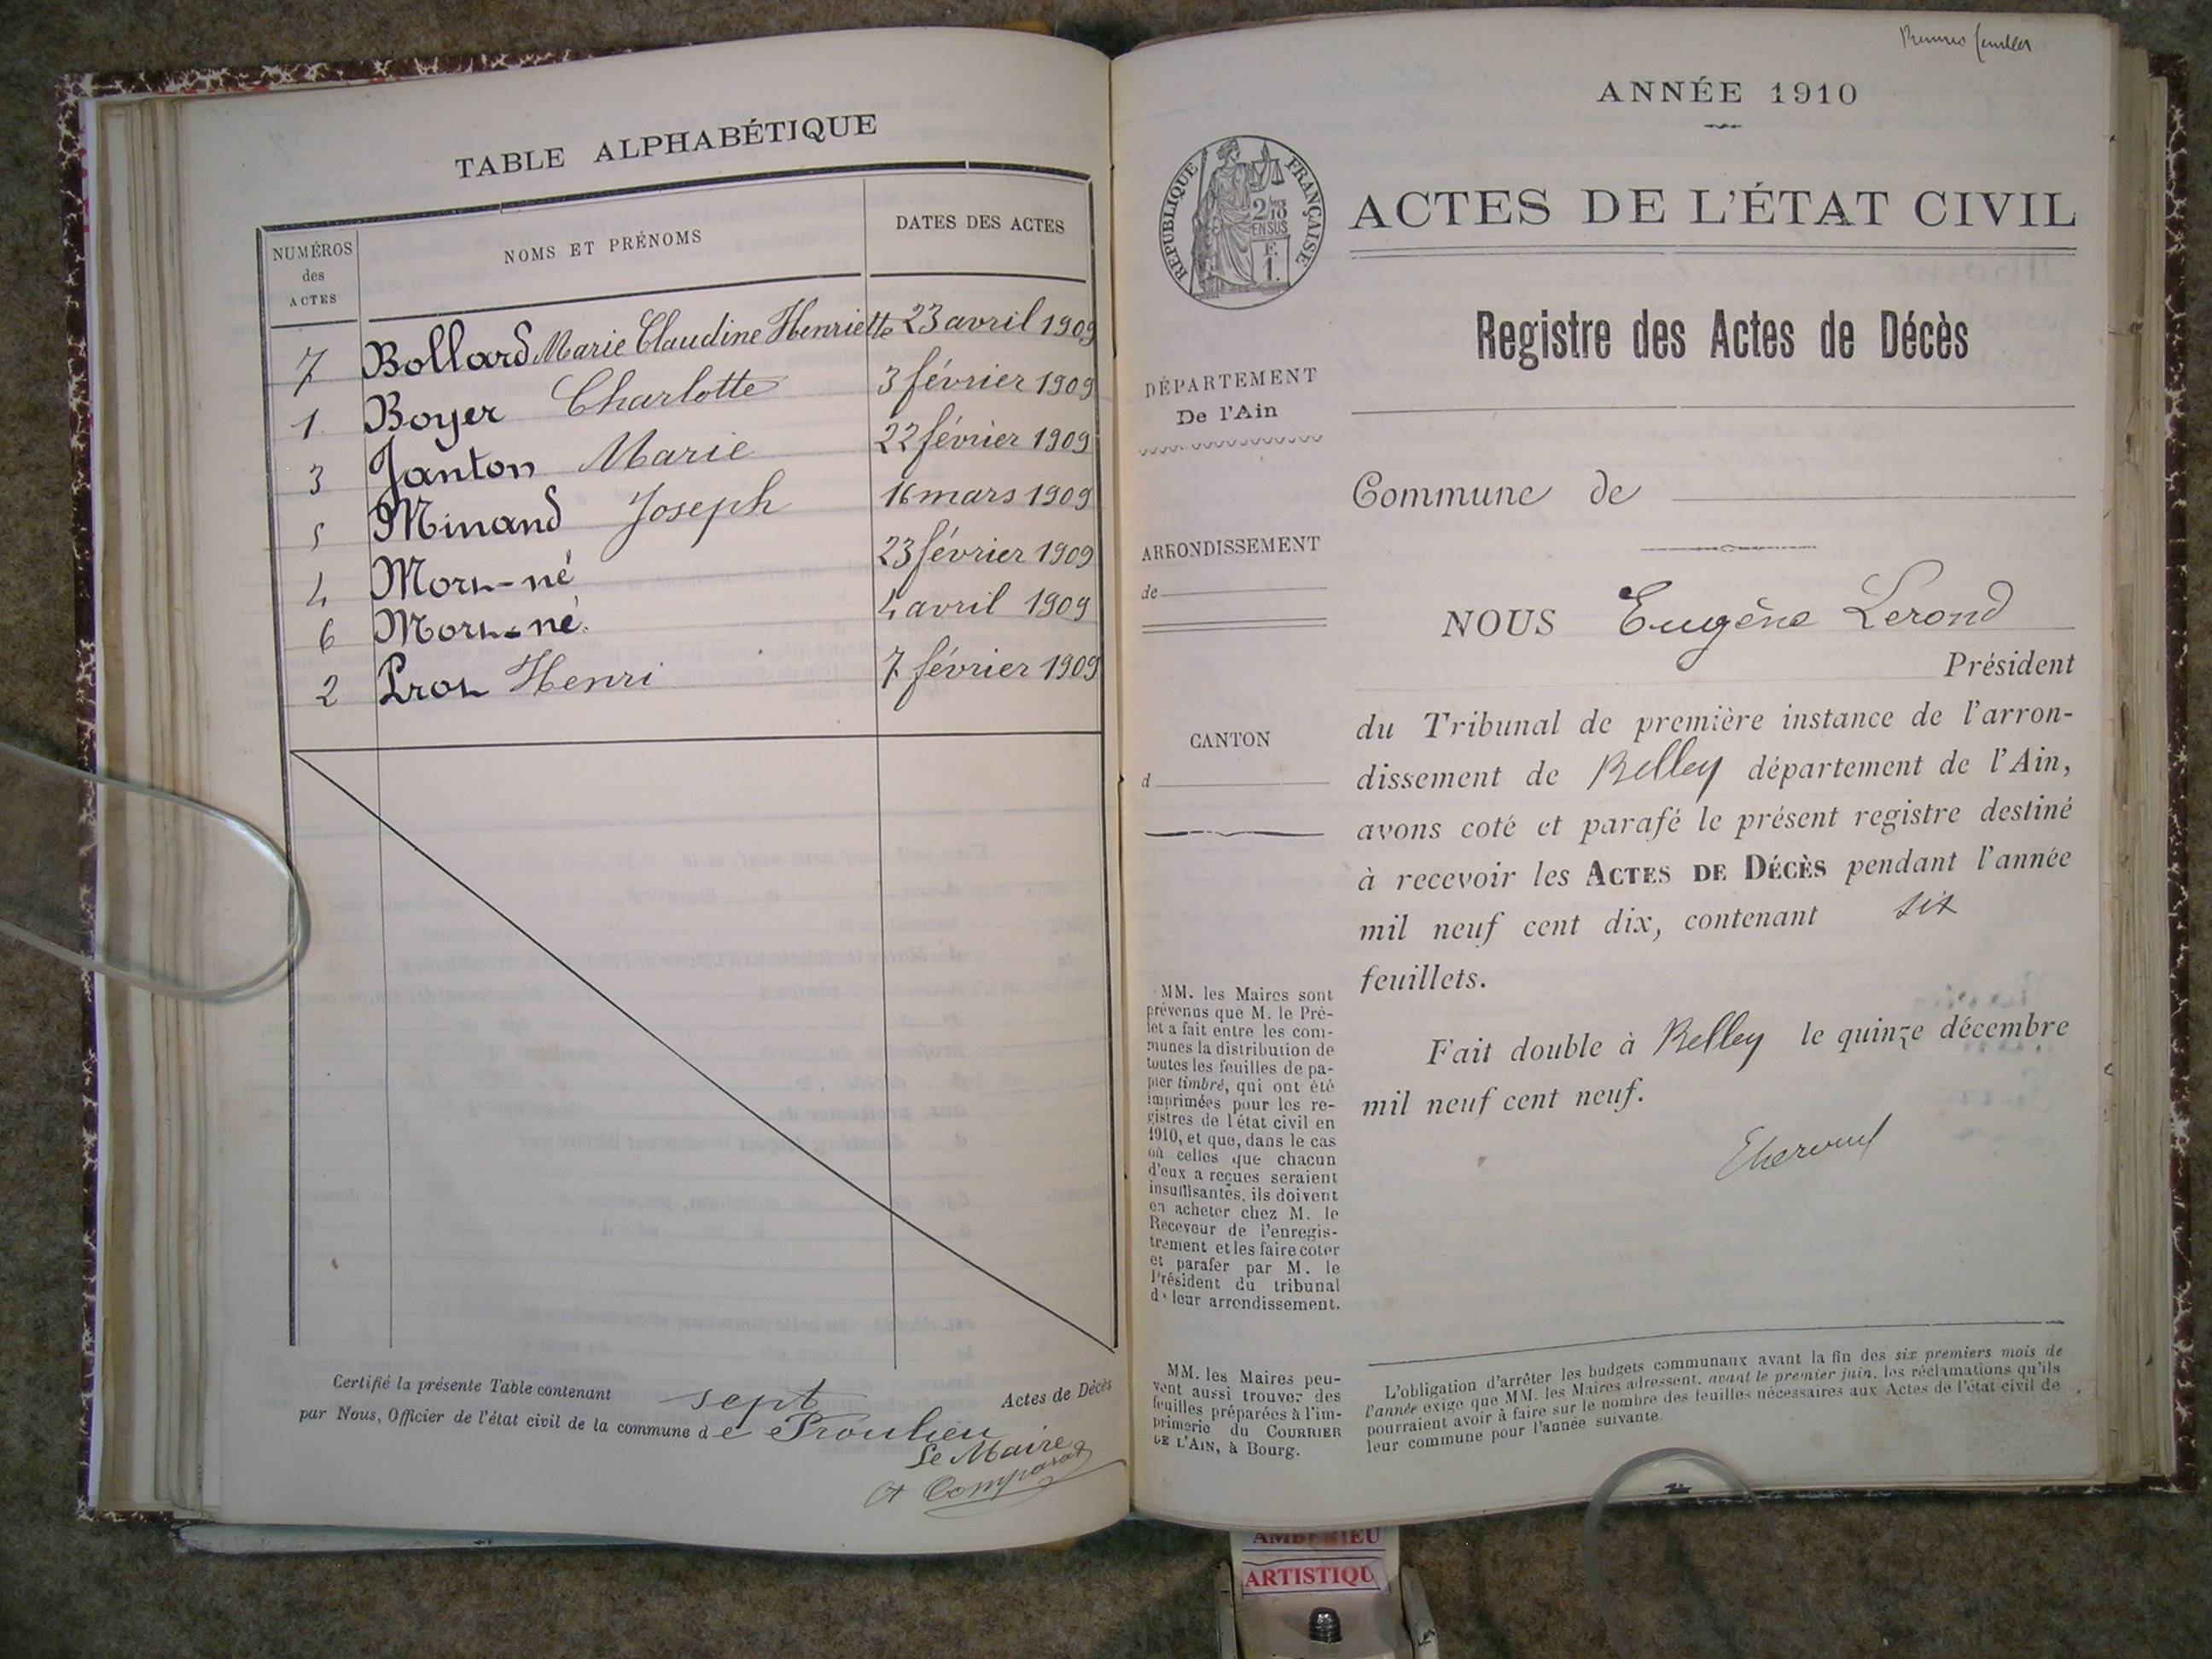 TABLE ALPHABÉTIQUE
NUMÉROS des ACTES NOMS ET PRÉNOMS DATES DES ACTES
7 Bollard Marie Claudine Henriette 23 avril 1909
1 Boyer Charlotte 3 février 1909
3 Janton Marie 22 février 1909
5 Minand Joseph 16 mars 1909
4 Mort-né 23 février 1909
6 Mort-né. 4 avril 1909
2 Prot Henri 7 février 1909
Certifié la présente Table contenant sept Actes de Décès
par Nous, Officier de l'état civil de la commune de Proulieu
Le Maire
Comparat
Premier feuillet
ANNÉE 1910
RÉPUBLIQUE FRANÇAISE
2/10 EN SUS
F.
1.
ACTES DE L'ÉTAT CIVIL
Registre des Actes de Décès
DÉPARTEMENT
De l'Ain
ARRONDISSEMENT
de
CANTON
d
MM. les Maires sont
prévenus que M. le Pré-
fet a fait entre les com-
munes la distribution de
toutes les feuilles de pa-
pier timbré, qui ont été
imprimées pour les re-
gistres de l'état civil en
1910, et que, dans le cas
où celles que chacun
d'eux a reçues seraient
insuffisantes, ils doivent
en acheter chez M. le
Receveur de l'enregis-
trement et les faire coter
et parafer par M. le
Président du tribunal
de leur arrondissement.
MM. les Maires peu-
vent aussi trouver des
feuilles préparées à l'im-
primerie du COURRIER
DE L'AIN, à Bourg.
Commune de
NOUS Eugène Lerond
Président
du Tribunal de première instance de l'arron-
dissement de Belley département de l'Ain,
avons coté et parafé le présent registre destiné
à recevoir les ACTES DE DÉCÈS pendant l'année
mil neuf cent dix, contenant six
feuillets.
Fait double à Belley le quinze décembre
mil neuf cent neuf.
L'obligation d'arrêter les budgets communaux avant la fin des six premiers mois de
l'année exige que MM. les Maires adressent, avant le premier juin, les réclamations qu'ils
pourraient avoir à faire sur le nombre des feuilles nécessaires aux Actes de l'état civil de
leur commune pour l'année suivante.
ARTISTIQU